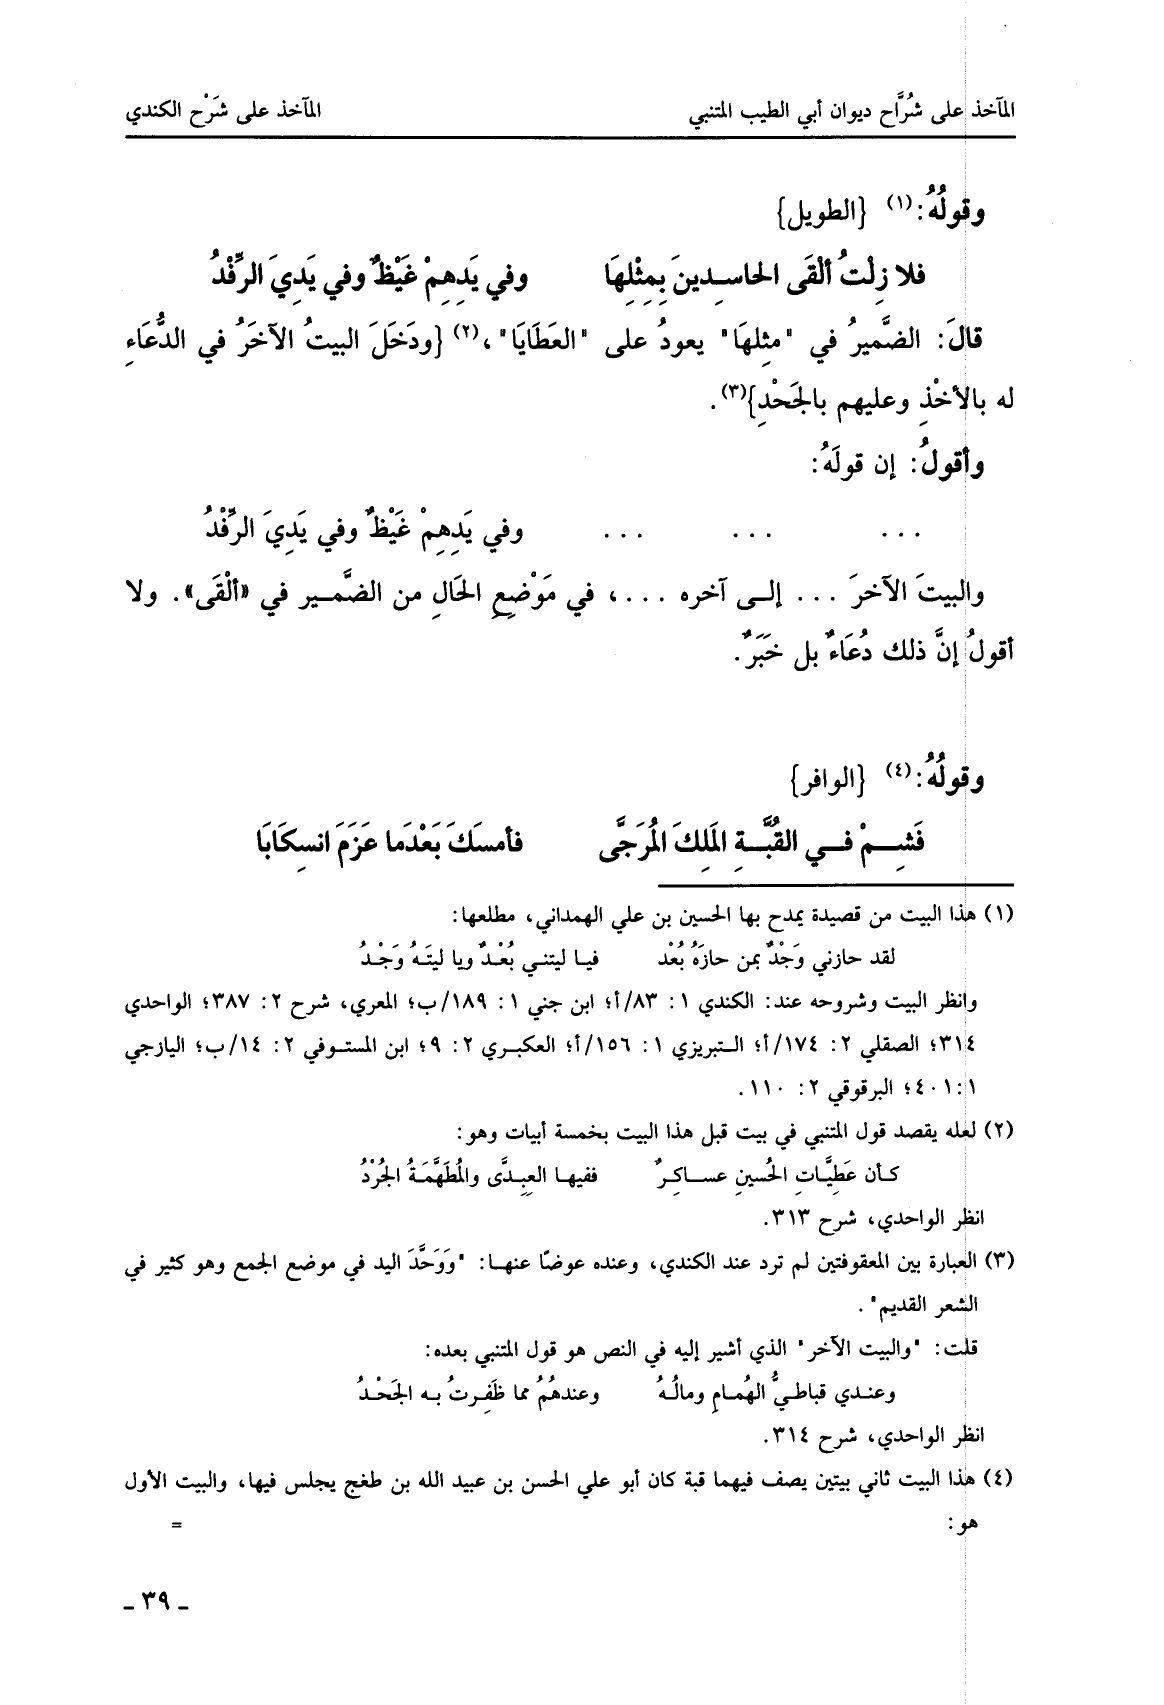 المآخذ على شُرَّاح ديوان أبي الطيب المتنبي المآخذ على شَرْح الكندي
وقولُهُ:(١) {الطويل}
فلا زِلْتُ ألْقَى الحاسِدِينَ بِمِثْلِهَا وفي يَدِهِمْ غَيْظٌ وفي يَدِيَ الرِّفْدُ
قالَ: الضَّميرُ في "مثِلهَا" يعودُ على "العَطَايَا"،(٢) {ودَخَلَ البيتُ الآخَرُ في الدُّعَاءِ
له بالأخْذِ وعليهم بالجَحْدِ}(٣).
وأقولُ: إن قولَهُ:
... ... ... وفي يَدِهِمْ غَيْظٌ وفي يَدِيَ الرِّفْدُ
والبيتَ الآخرَ ... إلى آخره ...، في مَوْضِعِ الحَالِ من الضَّمير في «ألْقَى». ولا
أقولُ إنَّ ذلك دُعَاءٌ بل خَبَرٌ.
وقولُهُ:(٤) {الوافر}
فَشِمْ في القُبَّةِ المَلِكَ المُرَجَّى فأمسَكَ بَعْدَما عَزَمَ انسِكَابَا
(١) هذا البيت من قصيدة يمدح بها الحسين بن علي الهمداني، مطلعها:
لقد حازني وَجْدٌ بمن حازَهُ بُعْد فيا ليتني بُعْدٌ ويا ليتَهُ وَجْدُ
وانظر البيت وشروحه عند: الكندي ١: ٨٣/أ؛ ابن جني ١: ١٨٩/ب؛ المعري، شرح ٢: ٣٨٧؛ الواحدي
٣١٤؛ الصقلي ٢: ١٧٤/أ؛ التبريزي ١: ١٥٦/أ؛ العكبري ٢: ٩؛ ابن المستوفي ٢: ١٤/ب؛ اليازجي
١: ٤٠١؛ البرقوقي ٢: ١١٠.
(٢) لعله يقصد قول المتنبي في بيت قبل هذا البيت بخمسة أبيات وهو:
كأن عَطِيَّاتِ الحُسينِ عساكِرٌ ففيها العِبِدَّى والمُطَهَّمَةُ الجُرْدُ
انظر الواحدي، شرح ٣١٣.
(٣) العبارة بين المعقوفتين لم ترد عند الكندي، وعنده عوضًا عنها: "وَوَحَّدَ اليد في موضع الجمع وهو كثير في
الشعر القديم".
قلت: "والبيت الآخر" الذي أشير إليه في النص هو قول المتنبي بعده:
وعندي قباطيُّ الهُمامِ ومالُهُ وعندهُمُ مما ظَفِرتُ به الجَحْدُ
انظر الواحدي، شرح ٣١٤.
(٤) هذا البيت ثاني بيتين يصف فيهما قبة كان أبو علي الحسن بن عبيد الله بن طغج يجلس فيها، والبيت الأول
هو: =
ـ ٣٩ ـ